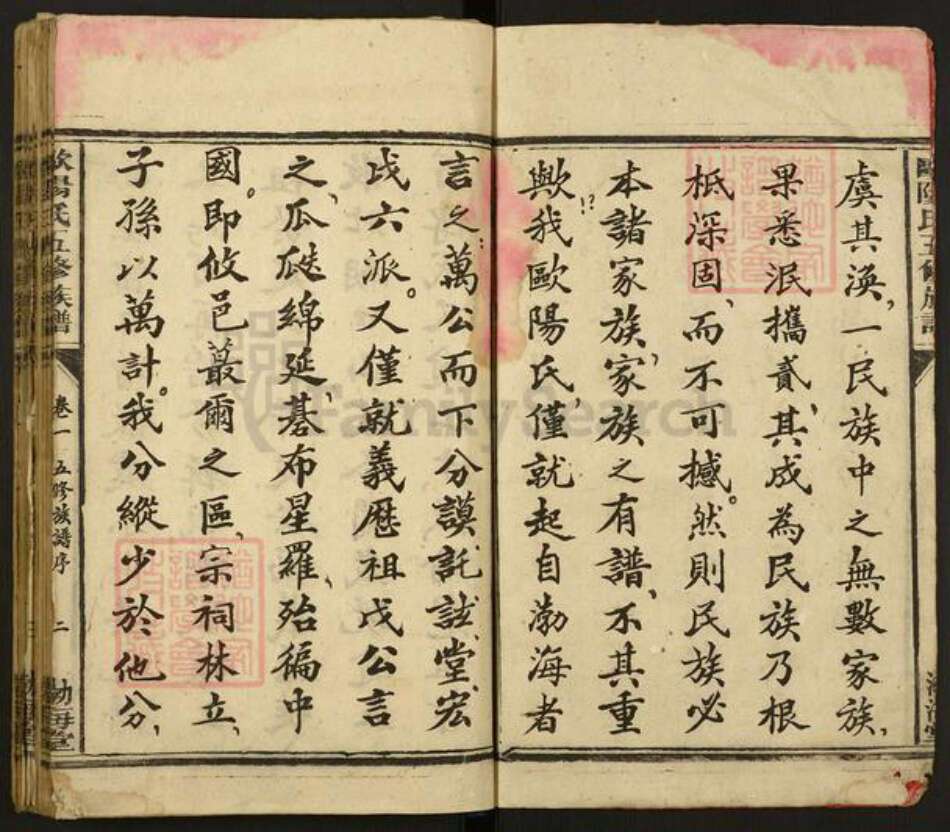 歐陽氏五修族譜
虞其渙、一民族中之無數家族、
果悉泯攜貳、其成為民族乃根
柢深固、而不可撼。然則民族必
本諸家族、家族之有譜、不其重
歟!?我歐陽氏、僅就起自渤海者
言之、萬公而下分謨託詃堂宏
戊六派。又僅就義厯祖戊公言
之、瓜瓞綿延、碁布星羅、殆徧中
國。即攸邑蕞爾之區、宗祠林立、
子孫以萬計。我分縱少於他分、
歐陽氏五修族譜
卷一 五修族譜序 二
渤海堂
FamilySearch